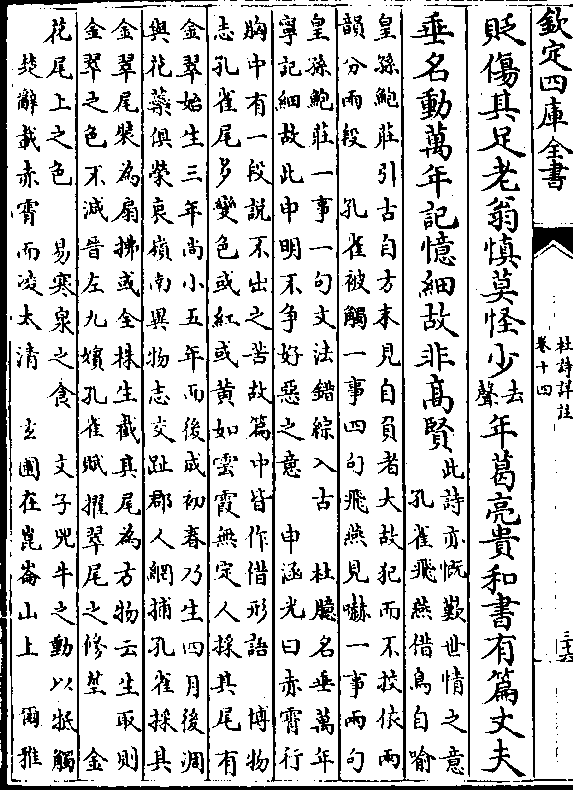 欽定四庫全書
杜詩詳註
卷十四
三十六
貶傷其足老翁慎莫怪少去聲年葛亮貴和書有篇丈夫
垂名動萬年記憶細故非高賢
此詩亦慨歎世情之意
孔雀飛燕借鳥自喻
皇孫鮑莊引古自方末見自負者大故犯而不挍依兩
韻分兩段　孔雀被觸一事四句飛燕見嚇一事兩句
皇孫鮑莊一事一句文法錯綜入古　杜臆名垂萬年
寧記細故此申明不争好惡之意　申涵光曰赤霄行
胸中有一段說不出之苦故篇中皆作借形語　博物
志孔雀尾多變色或紅或黄如雲霞無定人採其尾有
金翠始生三年尚小五年而後成初春乃生四月後凋
與花蘂俱榮衰嶺南異物志交趾郡人網捕孔雀採其
金翠尾裝為扇拂或全株生截其尾為方物云生取則
金翠之色不減晉左九嬪孔雀賦擢翠尾之修莖　金
花尾上之色　易寒泉之食　文子兕牛之動以牴觸
楚辭載赤霄而凌太清　玄圃在崑崙山上　爾雅